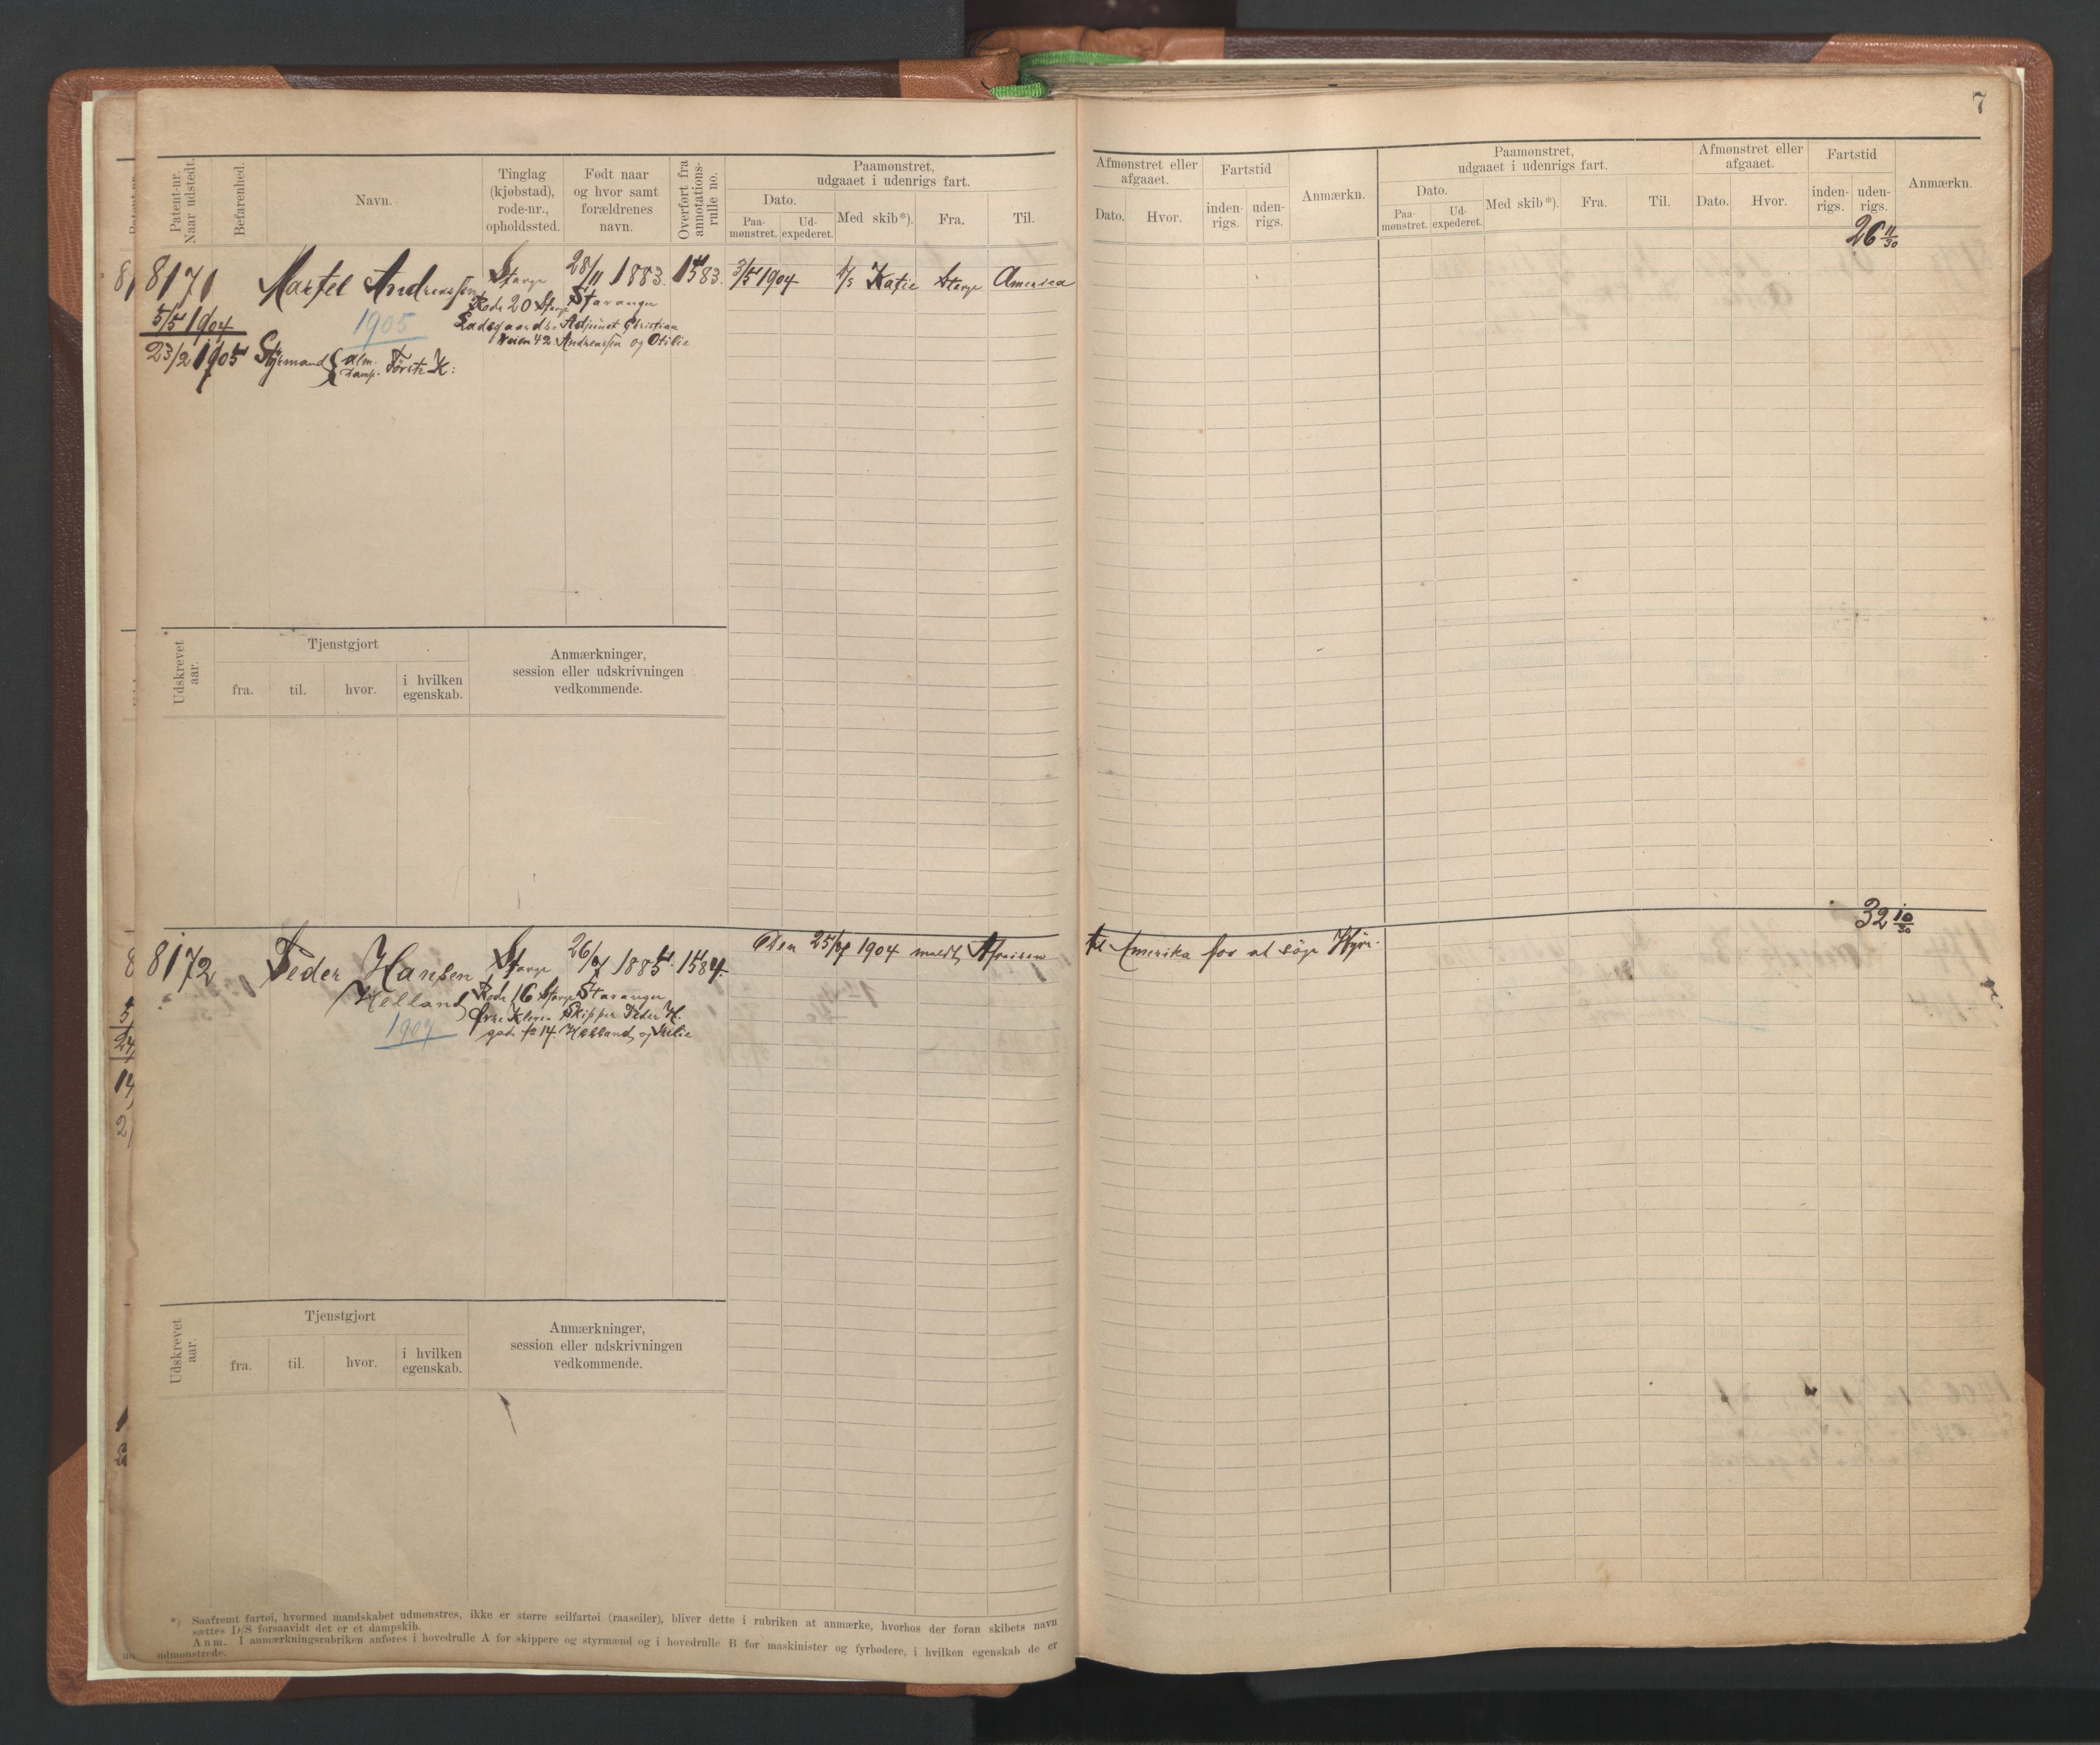 7
Patent-nr. Naar udstedt.
Befarenhed.
Navn.
Tinglag (kjøbstad), rode-nr., opholdssted.
Født naar og hvor samt forældrenes navn.
Overført fra annotations-rulle no.
Paamønstret, udgaaet i udenrigs fart.
Dato.
Paa-mønstret.
Ud-expederet.
Med skib*).
Fra.
Til.
Afmønstret eller afgaaet.
Dato.
Hvor.
Fartstid
inden-rigs.
uden-rigs.
Anmærkn.
Paamønstret, udgaaet i udenrigs fart.
Dato.
Paa-mønstret.
Ud-expederet.
Med skib*).
Fra.
Til.
Afmønstret eller afgaaet.
Dato.
Hvor.
Fartstid
inden-rigs.
uden-rigs.
Anmærkn.
26 11/30
8171 Andrenssen Stavgr 28/11 1883. 1583. 3/5 1904 Katie Stavgr America
5/5 1904 1905 Rode 20 Stavgr Stavanger
Ladegaards- Adjunct Christian
23/2 1905 Styrmand alm. damp. Første K: veien 42 Andrenssen og Otilie
Udskrevet aar.
Tjenstgjort
fra.
til.
hvor.
i hvilken egenskab.
Anmærkninger, session eller udskrivningen vedkommende.
32 10/30
8172 Peder Hansen Stavgr 1885. 1584. Den 1904 meldt Afreisen til Amerika for at søge Hyre.
Helland Rode 16 Stavgr Stavanger
1907 Skipper Peder H.
gade 14. Helland og
Udskrevet aar.
Tjenstgjort
fra.
til.
hvor.
i hvilken egenskab.
Anmærkninger, session eller udskrivningen vedkommende.
*) Saafremt fartøi, hvormed mandskabet udmønstres, ikke er større seilfartøi (raaseiler), bliver dette i rubriken at anmærke, hvorhos der foran skibets navn
sættes D/S forsaavidt det er et dampskib.
Anm. I anmærkningsrubriken anføres i hovedrulle A for skippere og styrmænd og i hovedrulle B for maskinister og fyrbødere, i hvilken egenskab de er
udmønstrede.